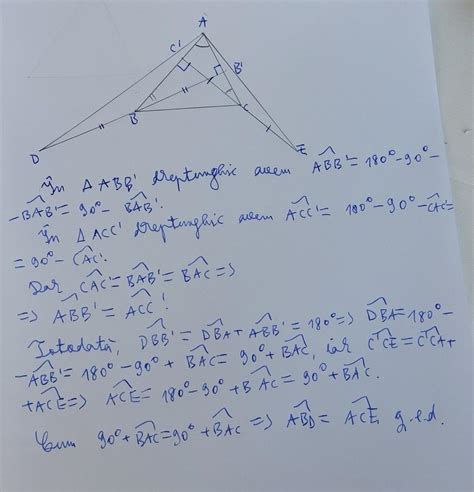 A
C'
B'
B
C
D
E
În Δ ABB' dreptunghic avem ABB' = 180° - 90° -
- BAB' = 90° - BAB'.
În Δ ACC' dreptunghic avem ACC' = 180° - 90° - CAC' =
= 90° - CAC'.
Dar CAC' = BAB' = BAC =>
=> ABB' = ACC'.
Totodată, DBB' = DBA + ABB' = 180° => DBA = 180° -
- ABB' = 180° - 90° + BAC = 90° + BAC, iar C'CE = C'CA +
+ ACE => ACE = 180° - 90° + BAC = 90° + BAC.
Cum 90° + BAC = 90° + BAC => ABD = ACE, q.e.d.